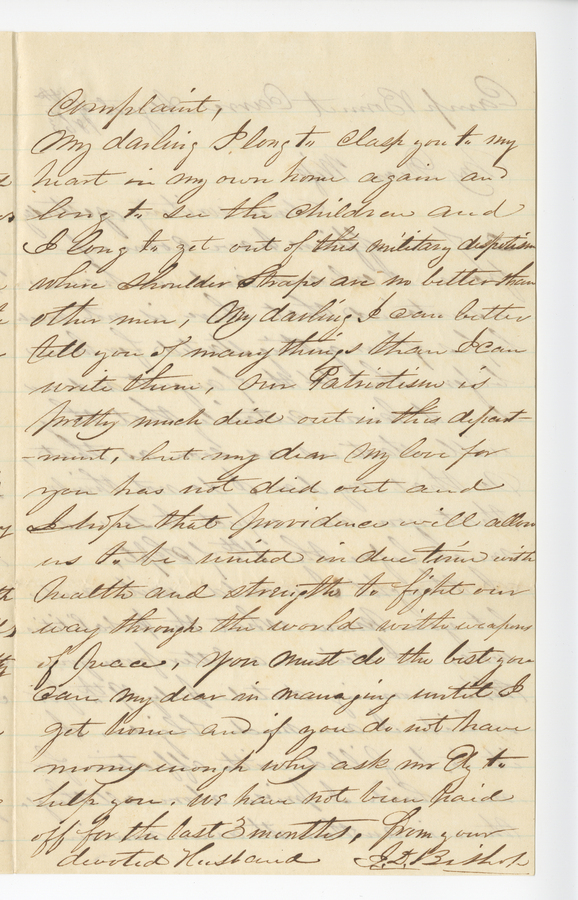 Complaint,
My darling I long to clasp you to my
heart in my own home again and
long to see the children and
I long to get out of this military despotism
where shoulder straps are no better than
other men, My darling I can better
tell you of many things than I can
write them, our Patriotism is
pretty much died out in this depart-
-ment, but my dear my love for
you has not died out and
I hope that providence will allow
us to be united in due time with
health and strength to fight our
way through the world with weapons
of Peace, you must do the best you
can my dear in managing until I
get home and if you do not have
money enough why ask mr Ely to
help you. we have not been paid
off for the last 3 months, from your
devoted Husband J. D. Bishop